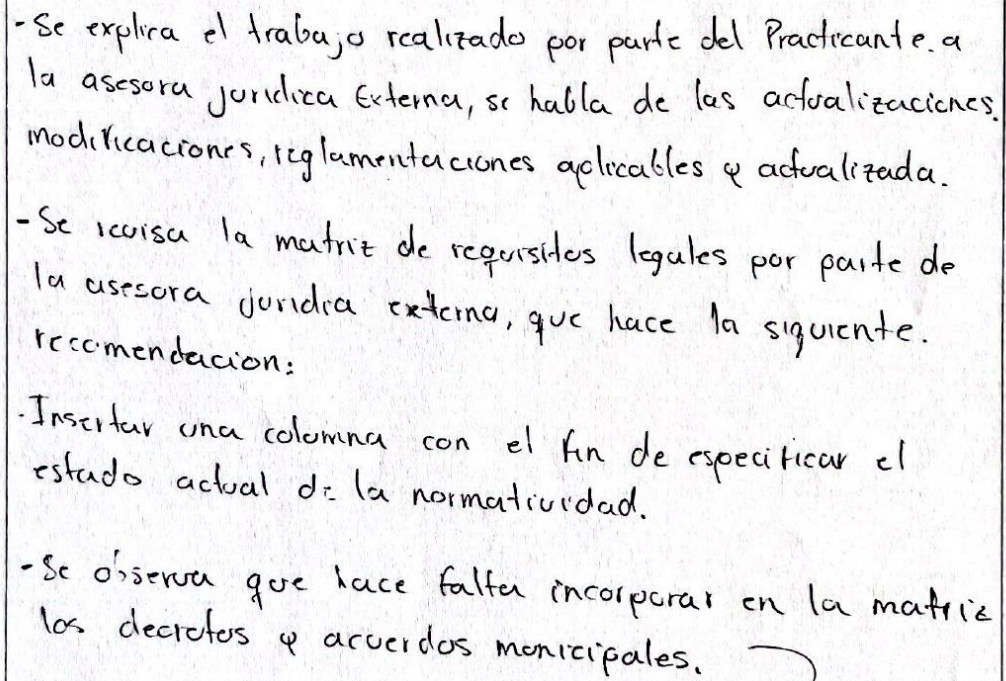 - Se explica el trabajo realizado por parte del Practicante. a
la asesora juridica Externa, se habla de las actualizaciones.
modificaciones, reglamentaciones aplicables y actualizada.
- Se revisa la matriz de requisitos legales por parte de
la asesora juridia externa, que hace la siguiente.
recomendacion:
- Insertar una columna con el fin de especificar el
estado actual de la normatividad.
- Se observa que hace falta incorporar en la matriz
los decretos y acuerdos municipales.